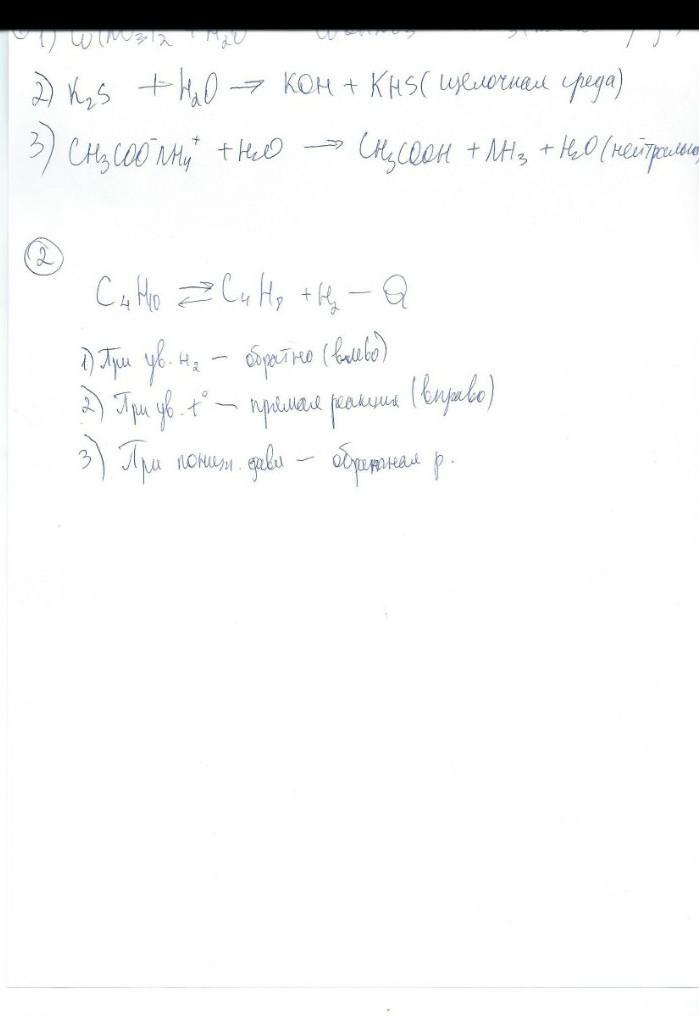 2) K₂S + H₂O → KOH + KHS (щелочная среда)
3) CH₃COO⁻NH₄⁺ + H₂O → CH₃COOH + NH₃ + H₂O (нейтрально
2
C₄H₁₀ ⇄ C₄H₈ + H₂ – Q
1) При ув. H₂ – обратно (влево)
2) При ув. t° – прямая реакция (вправо)
3) При пониж. давл – обратная р.